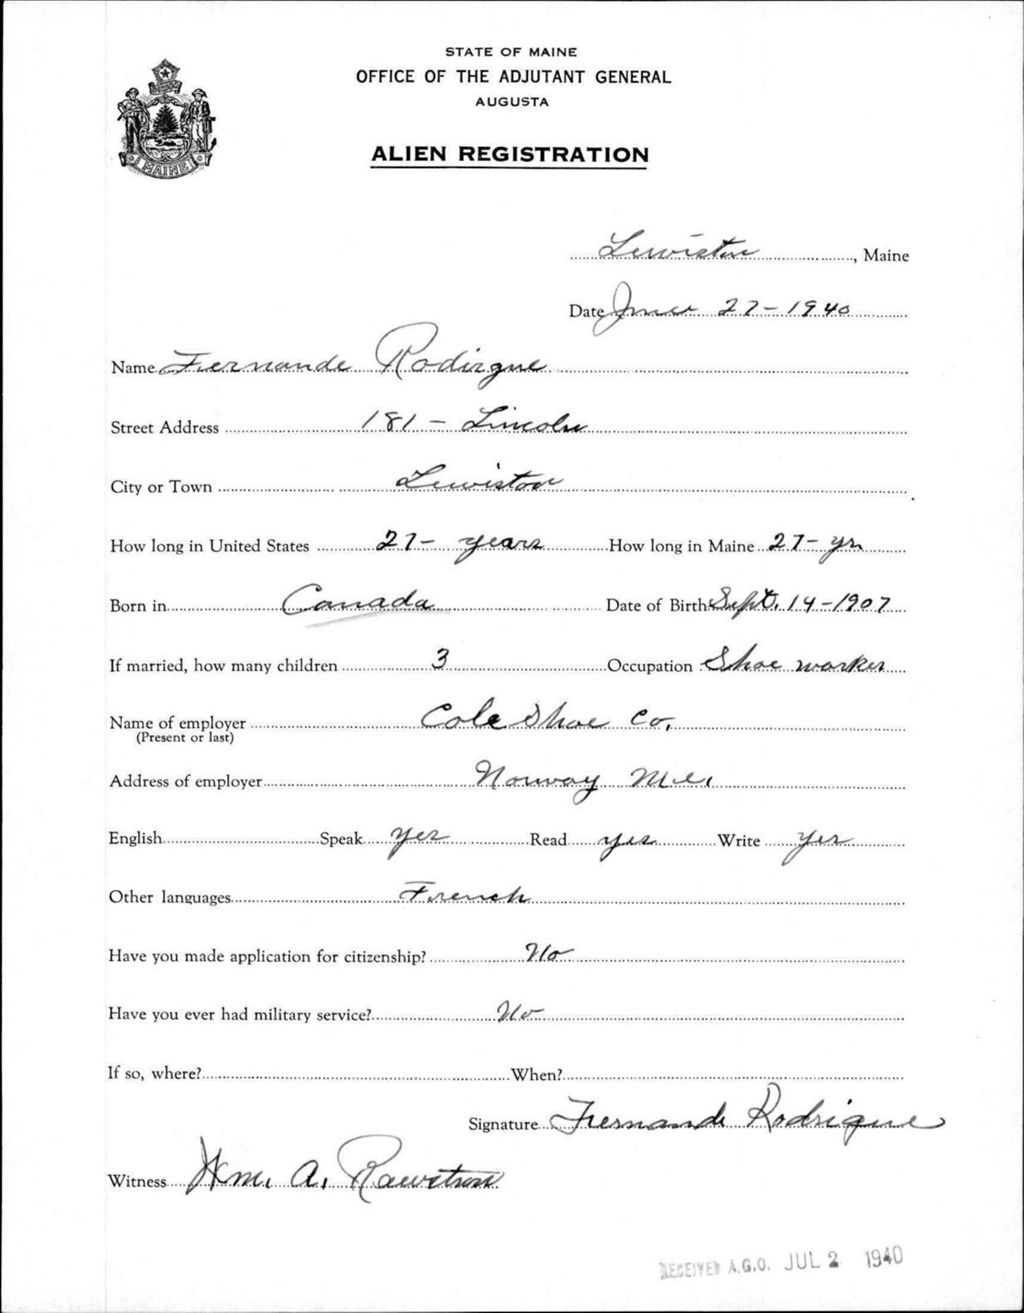 STATE OF MAINE
OFFICE OF THE ADJUTANT GENERAL
AUGUSTA
ALIEN REGISTRATION
MAINE
Lewiston, Maine
Date June 27-1940
Name Fernande Rodirgue
Street Address 181 - Lincoln
City or Town Lewiston
How long in United States 27- years How long in Maine 27- yrs
Born in Canada Date of Birth Sept. 14-1907
If married, how many children 3 Occupation Shoe worker
Name of employer Cole Shoe Co.
(Present or last)
Address of employer Norway Me.
English Speak yes Read yes Write yes
Other languages French
Have you made application for citizenship? No
Have you ever had military service? No
If so, where? When?
Signature Fernande Rodrigue
Witness Wm. A. Rawstron
RECEIVED A.G.O. JUL 2 1940